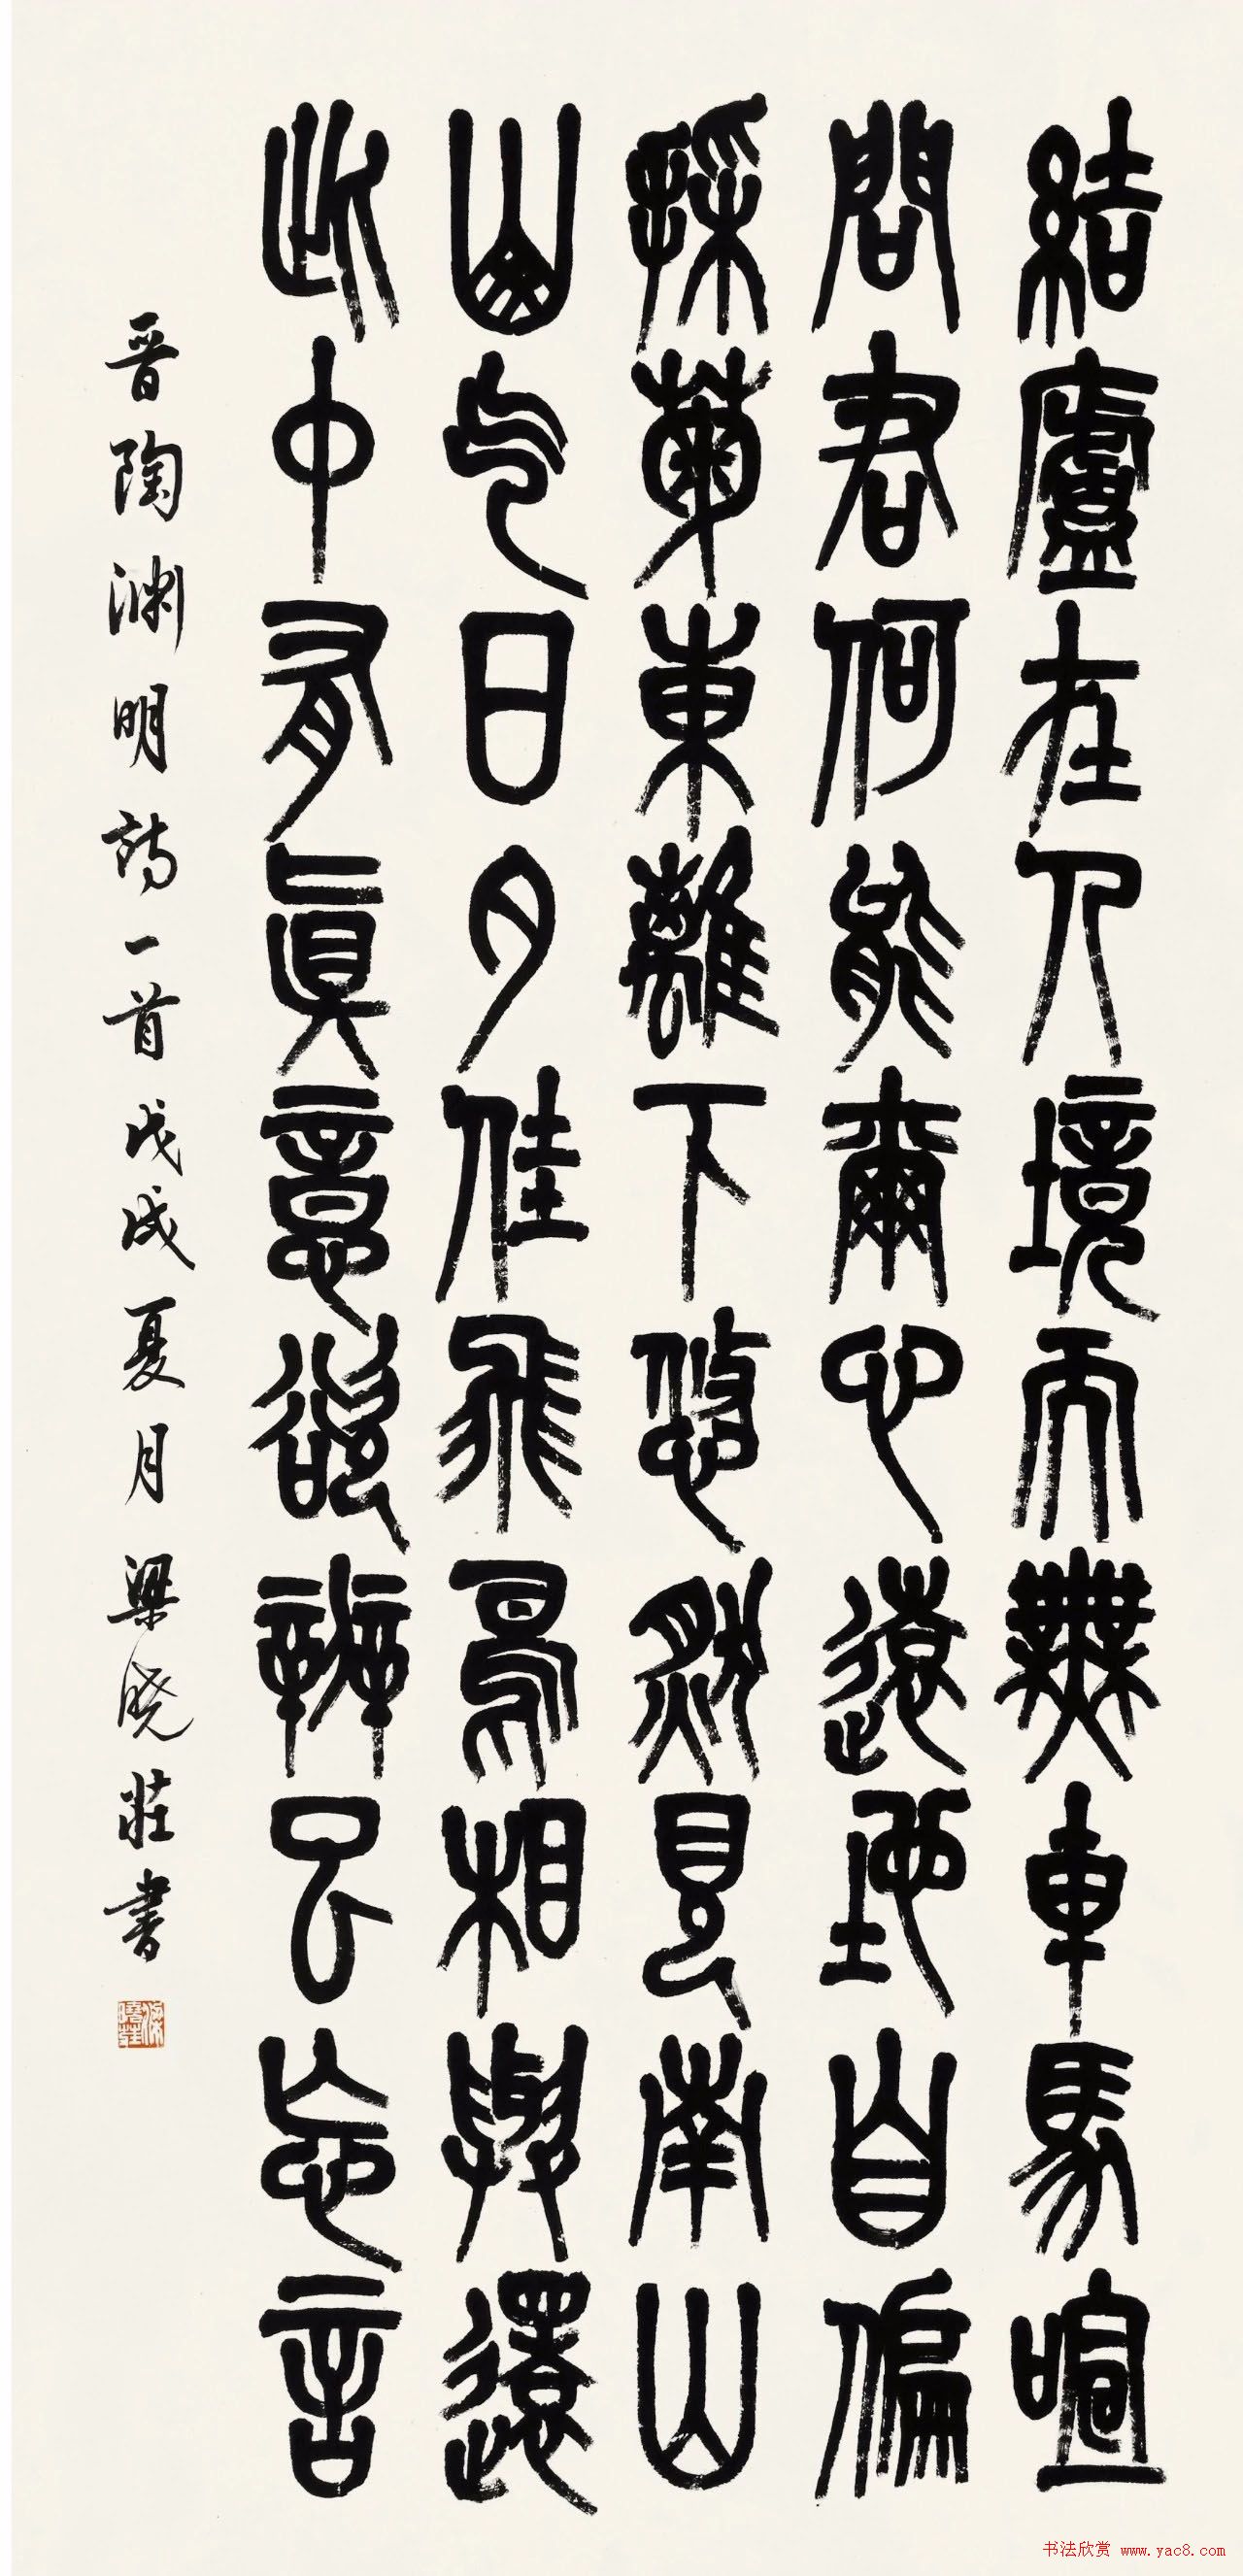 結廬在人境而無車馬喧
問君何能爾心遠地自偏
採菊東籬下悠然見南山
山气日夕佳飛鳥相與還
此中有眞意欲辨已忘言
晋陶渊明詩一首戊戌夏月梁晓莊書
书法欣赏 www.yac8.com